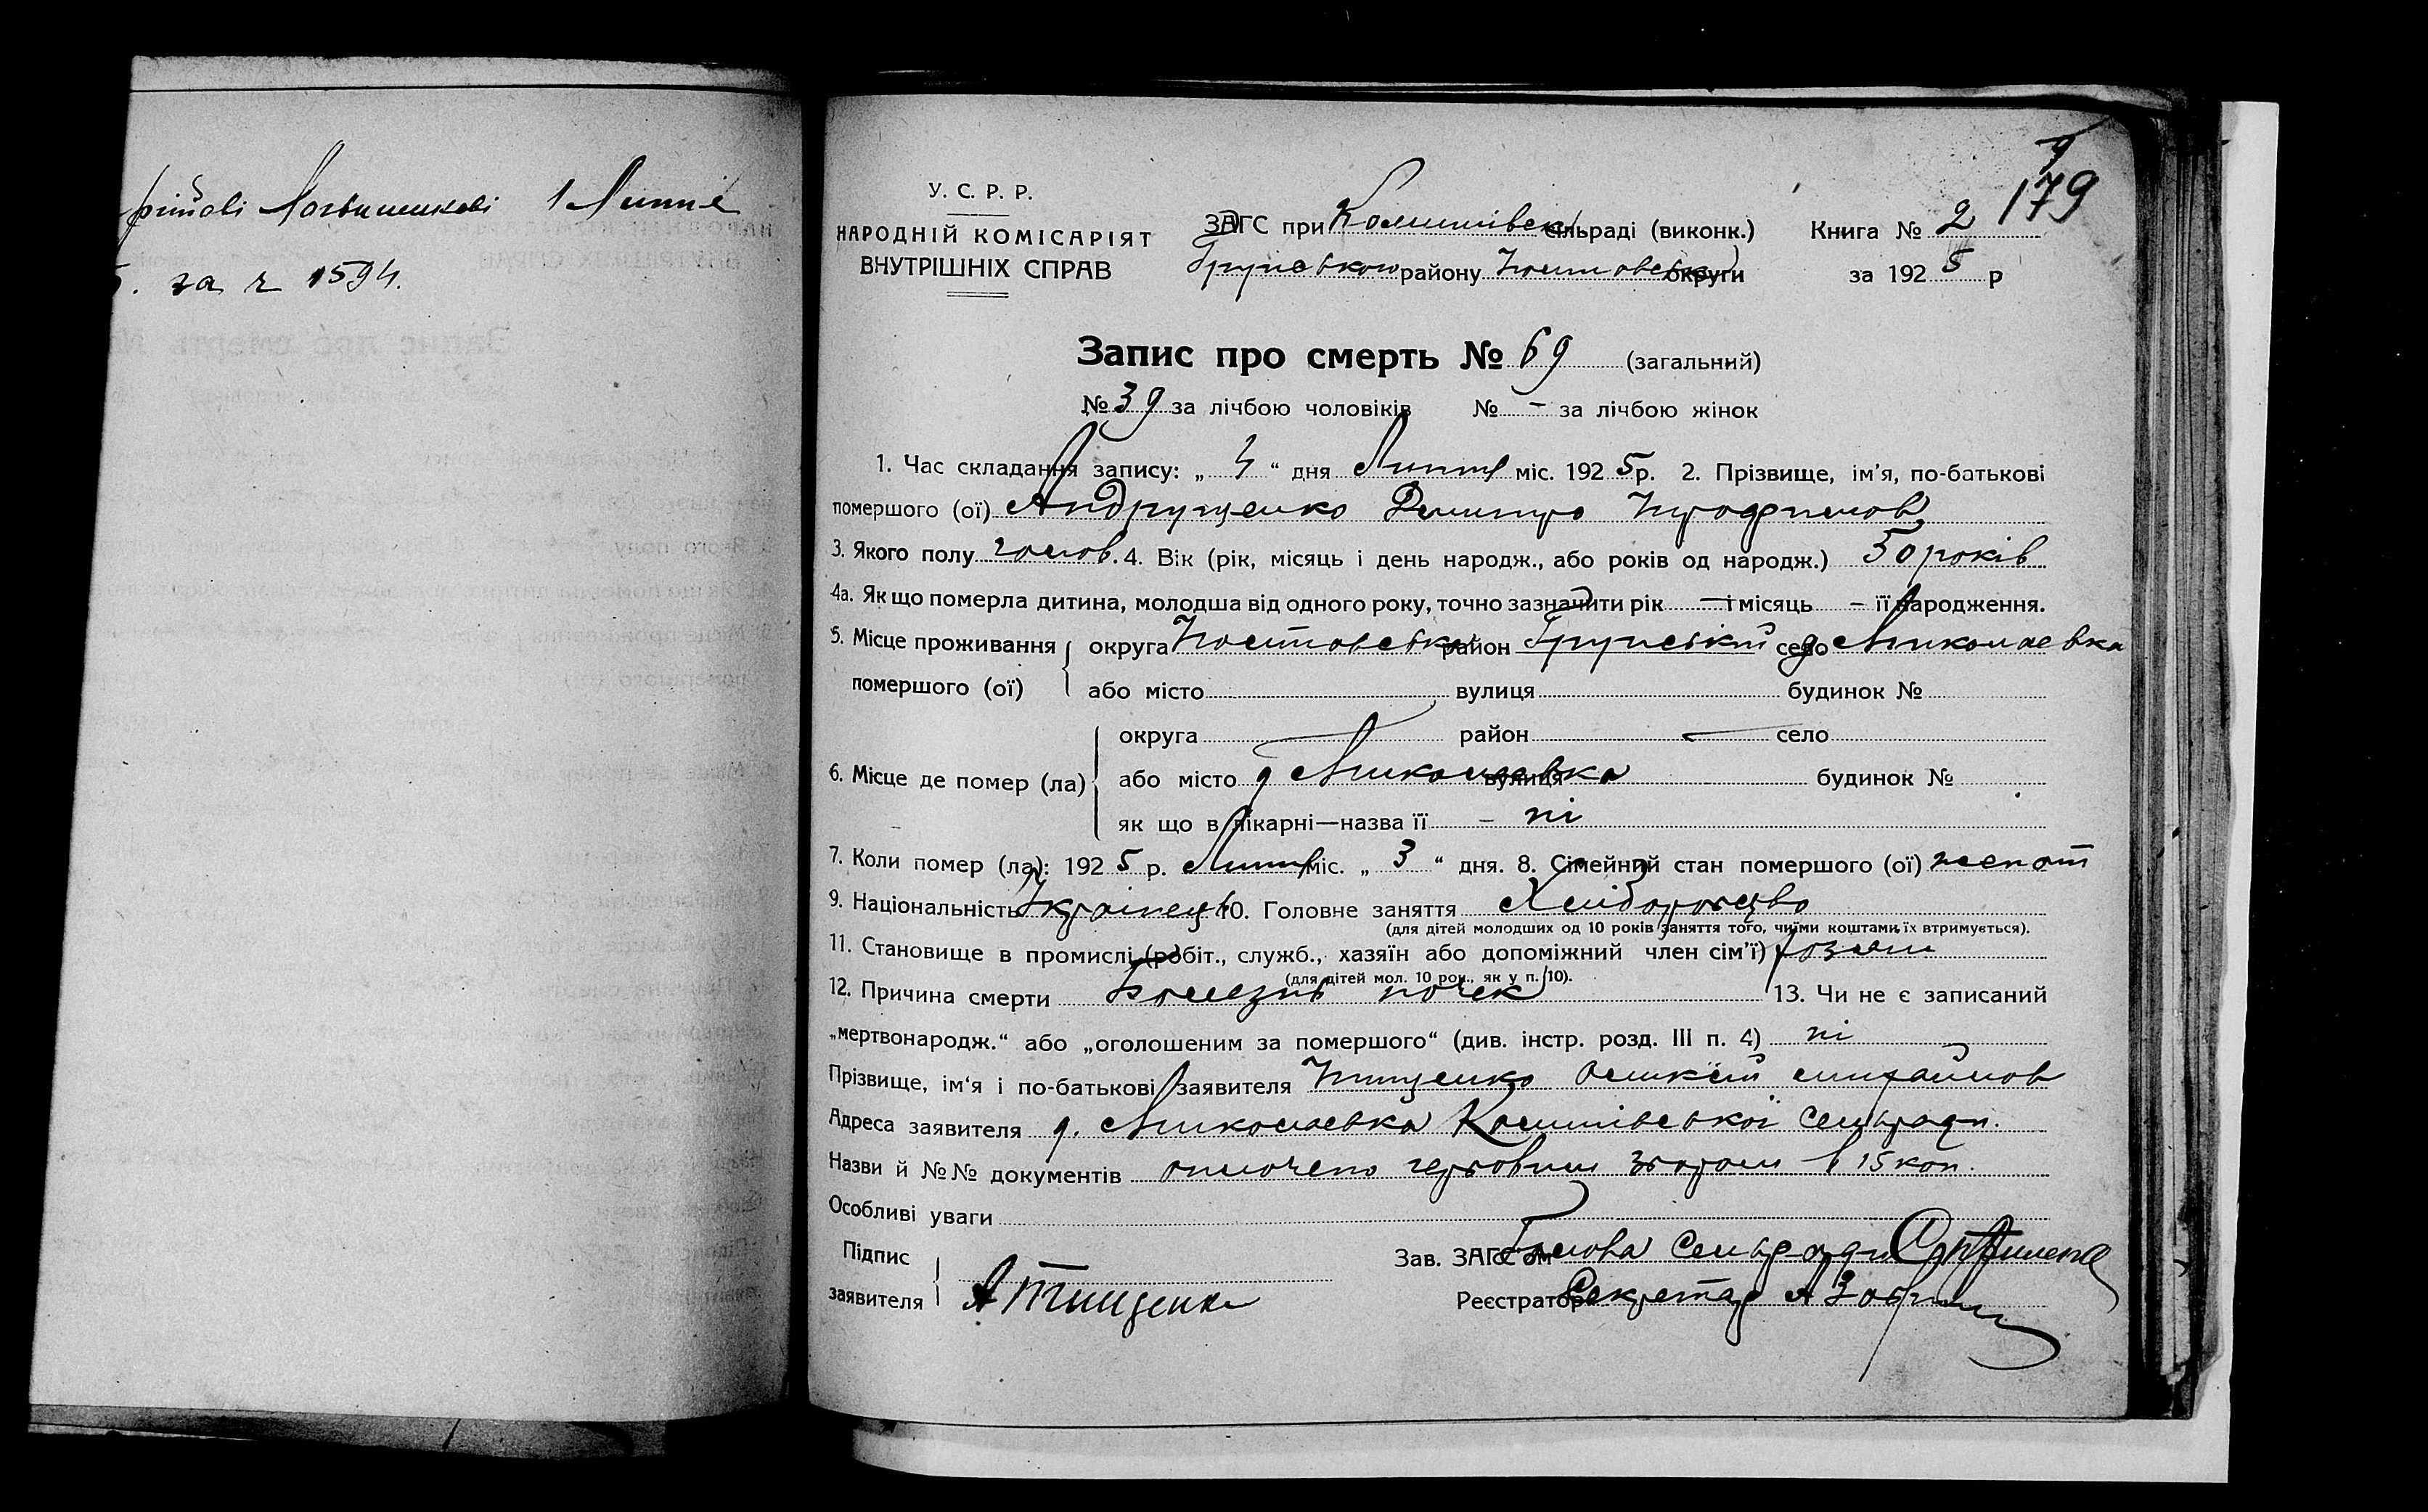 1 Липня
за ч 1594.
179
У. С. Р. Р.
НАРОДНІЙ КОМІСАРІЯТ
ВНУТРІШНІХ СПРАВ
ЗАГС при сільраді (виконк.)
району округи
Книга № 2
за 1925 р
Запис про смерть № 69 (загальний)
№ 39 за лічбою чоловіків № – за лічбою жінок
1. Час складання запису: „ 4 “ дня Липня міс. 1925 р. 2. Прізвище, ім’я, по-батькові
помершого (ої) Андрущенко Дмитро Трофимов
3. Якого полу чолов. 4. Вік (рік, місяць і день народж., або років од народж.) 50 років
4а. Як що померла дитина, молодша від одного року, точно зазначити рік — і місяць – її народження.
5. Місце проживання округа район Грунський село д Миколаевка
помершого (ої) або місто вулиця будинок №
округа район — село
6. Місце де помер (ла) або місто д Миколаевка вулиця будинок №
як що в лікарні—назва її – ні
7. Коли помер (ла): 1925 р. Липня міс. „ 3 “ дня. 8. Сімейний стан помершого (ої) женат
9. Національність Українець 10. Головне заняття Хліборобство
(для дітей молодших од 10 років заняття того, чиїми коштами їх втримується).
11. Становище в промислі (робіт., служб., хазяїн або допоміжний член сім’ї) хозяин
(для дітей мол. 10 рок., як у п. 10).
12. Причина смерти Болезнь почек 13. Чи не є записаний
„мертвонародж.“ або „оголошеним за помершого“ (див. інстр. розд. III п. 4) ні
Прізвище, ім‘я і по-батькові заявителя Тищенко
Адреса заявителя д. Миколаевка сельради.
Назви й №№ документів оплочено гербовим збором в 15 коп.
Особливі уваги
Підпис
заявителя А Тищенко
Зав. ЗАГС’ом Голова Сельради
Реєстратор Секретар